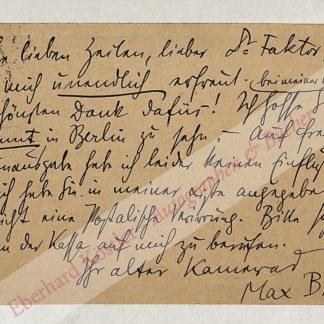 lieben Zeilen, lieber Dr Faktor
mich unendlich erfreut. (bei meiner
schönsten Dank dafür! Ich hoffe S
in Berlin zu sehn, – Auf
habe ich leider keinen Einfluß
ich habe Sie in meiner angegeben
eine Postalische Bitte
an der Kassa auf mich zu berufen.
Ihr alter Kamerad
Max B
Eberhard Köstler Autographen & Bücher